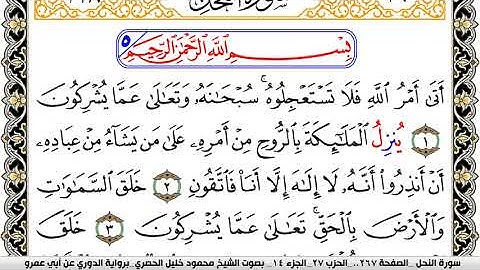 سورة النحل
بِسْمِ اللَّهِ الرَّحْمَٰنِ الرَّحِيمِ ٥
أَتَىٰ أَمْرُ اللَّهِ فَلَا تَسْتَعْجِلُوهُ ۚ سُبْحَانَهُ وَتَعَالَىٰ عَمَّا يُشْرِكُونَ
١ يُنزِلُ الْمَلَائِكَةَ بِالرُّوحِ مِنْ أَمْرِهِ عَلَىٰ مَن يَشَاءُ مِنْ عِبَادِهِ
أَنْ أَنذِرُوا أَنَّهُ لَا إِلَٰهَ إِلَّا أَنَا فَاتَّقُونِ ٢ خَلَقَ السَّمَاوَاتِ
وَالْأَرْضَ بِالْحَقِّ ۚ تَعَالَىٰ عَمَّا يُشْرِكُونَ ٣ خَلَقَ
سورة النحل _الصفحة ٢٦٧.. _الحزب ٢٧_الجزء ١٤_ بصوت الشيخ محمود خليل الحصري_برواية الدوري عن أبي عمرو